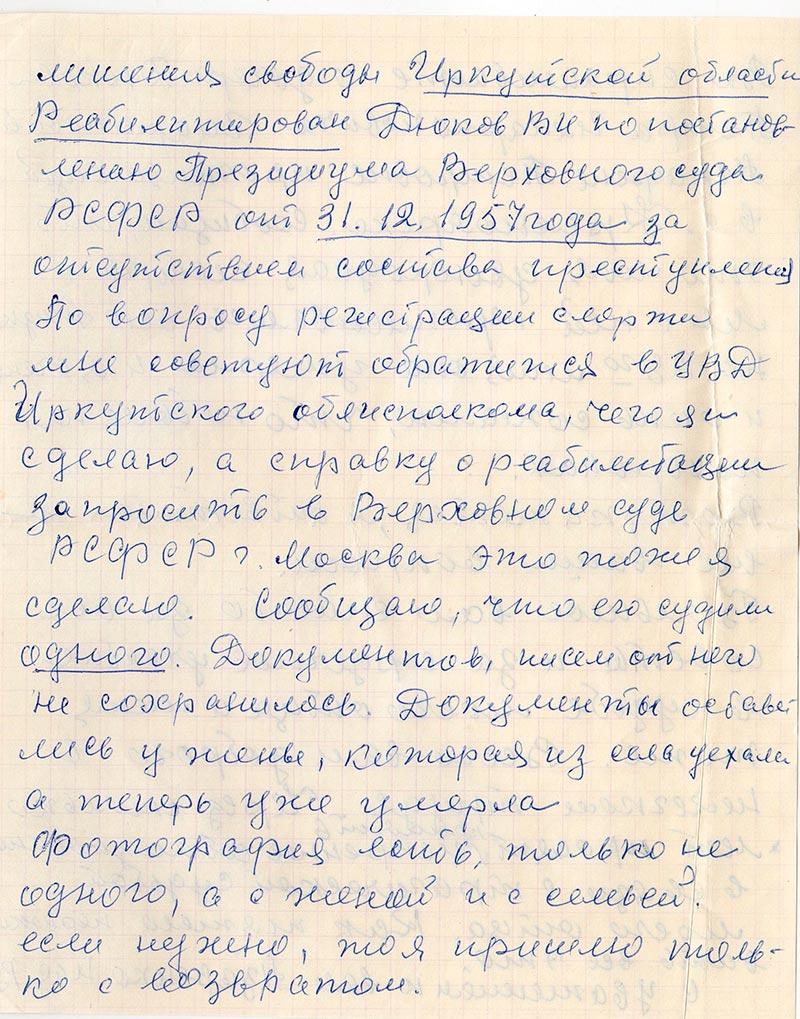 лишения свободы Иркутской области
Реабилитирован Дюков ВИ по постанов-
лению Президиума Верховного суда
РСФСР от 31.12.1957 года за
отсутствием состава преступления
По вопросу регистрации смерти
мне советуют обратится в УВД
Иркутского облисполкома, чего я и
сделаю, а справку о реабилитации
запросить в Верховном суде
РСФСР г. Москва это тоже я
сделаю. Сообщаю, что его судили
одного. Документов, писем от него
не сохранилось. Документы остава
лись у жены, которая из села уехала
а теперь уже умерла
Фотография есть, только не
одного, а с женой и с семьей.
если нужно, то я пришлю толь-
ко с возвратом.